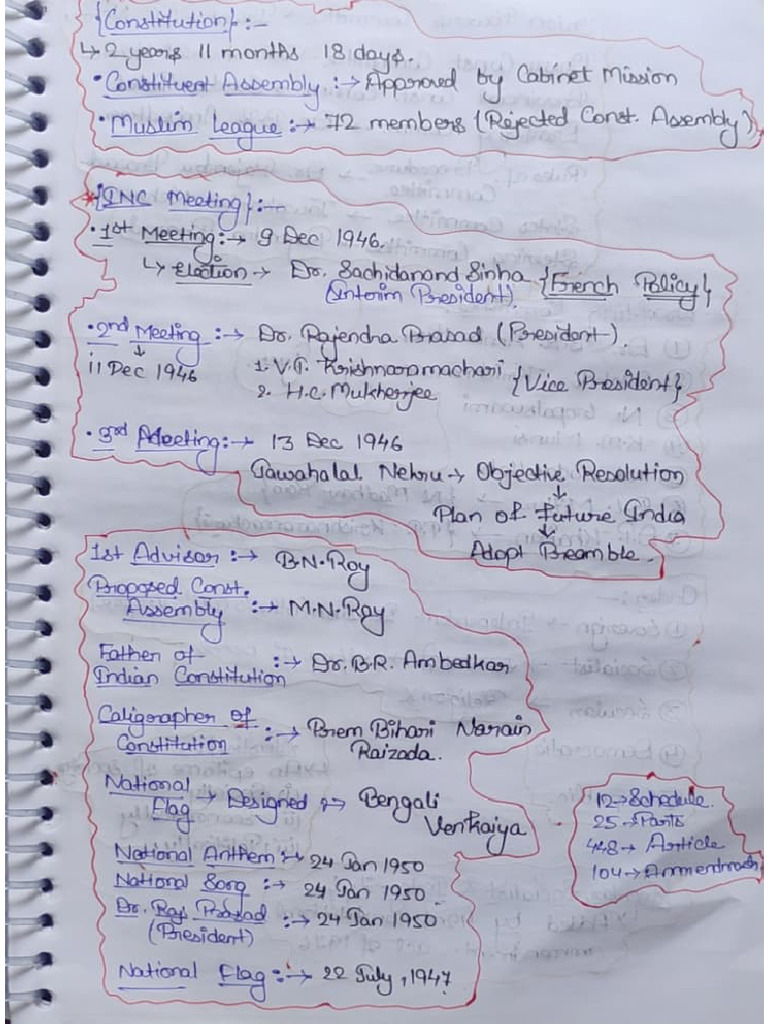 {Constitution} :-
↳ 2 years 11 months 18 days.
• Constituent Assembly :→ Approved by Cabinet Mission
• Muslim League :→ 72 members (Rejected Const. Assembly)
*{INC Meeting} :-
• 1st Meeting :→ 9 Dec 1946.
↳ Election → Dr. Sachidanand Sinha {French Policy}
(Interim President)
• 2nd Meeting :→ Dr. Rajendra Prasad (President)
↓
11 Dec 1946
1. V.T. Krishnaramachari {Vice President}
2. H.C. Mukherjee
• 3rd Meeting :→ 13 Dec 1946
Jawahalal Nehru → Objective Resolution
↓
Plan of Future India
↓
Adopt Preamble.
1st Advisor :→ B.N. Roy
Proposed Const.
Assembly :→ M.N. Roy
Father of
Indian Constitution :→ Dr. B.R. Ambedkar
Caligrapher of
Constitution :→ Prem Bihari Narain
Raizada.
National
Flag → Designed :→ Bengali
Venkaiya
12 → Schedule.
25 → Parts
448 → Article
104 →
National Anthem :→ 24 Jan 1950
National Song :→ 24 Jan 1950.
Dr. Raj. Prasad :→ 24 Jan 1950
(President)
National Flag :→ 22 July, 1947